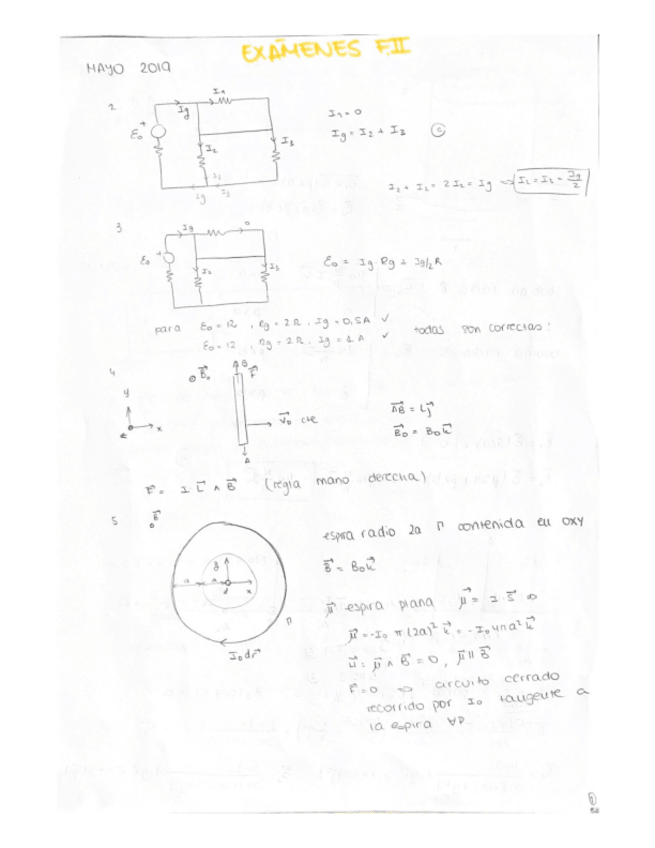 EXÁMENES F.II
MAYO 2019
2.
I₁
Ig
I₁ = 0
ε₀
+
I₂
I₃
Ig = I₂ + I₃ ⓒ
Ig
I₂ + I₂ = 2I₂ = Ig ⇒ I₂ = I₃ = Ig/2
3.
Ig
0
ε₀
+
I₂
I₃
ε₀ = Ig·Rg + Ig/2 R
para ε₀ = 12 , Rg = 2Ω , Ig = 0,5A ✓
ε₀ = 12 , Rg = 2Ω , Ig = 1 A ✓
todas son correctas!
4
B₀
B
F
y
x
z
V₀ cte
A
AB = Lj
B₀ = B₀k
F = I·L ∧ B (regla mano derecha)
5
B
espira radio 2a Γ contenida en OXY
B = B₀k
y
a
a
x
Γ
I₀dr
μ espira plana μ = I·S ⇒
μ = -I₀ π(2a)² k = -I₀4πa² k
M = μ ∧ B = 0 , μ ∥ B
F=0 ⇒ circuito cerrado
recorrido por I₀ tangente a
la espira ∀P
①